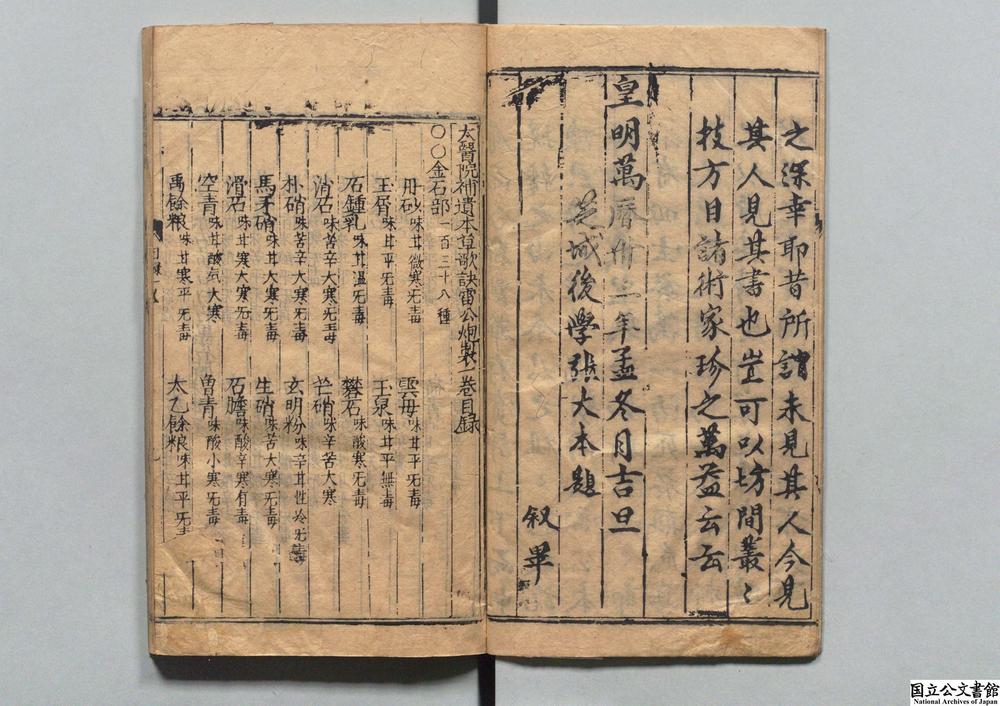 之深幸耶昔所謂未見其人今見
其人見其書也豈可以坊間叢〻
技方目諸術家珍之萬益云云
皇明萬曆年孟冬月吉旦
芝城後學張大本題
叙畢
太醫院補遺本草歌訣雷公炮製一卷目録
〇〇金石部一百三十八種
丹砂味甘微寒旡毒 雲母味甘平旡毒
玉屑味甘平旡毒 玉泉味甘平無毒
石鍾乳味甘溫旡毒 礬石味酸寒旡毒
消石味苦辛大寒旡毒 芒硝味辛苦大寒
朴硝味苦辛大寒旡毒 玄明粉味辛甘性冷旡毒
馬牙硝味甘大寒旡毒 生硝味苦大寒旡毒
滑石味甘寒大寒旡毒 石膽味酸辛寒有毒
空青味甘酸大寒旡毒 曾青味酸小寒旡毒
禹餘粮味甘寒平旡毒 太乙餘粮味甘平旡
目録一
国立公文書館
National Archives of Japan